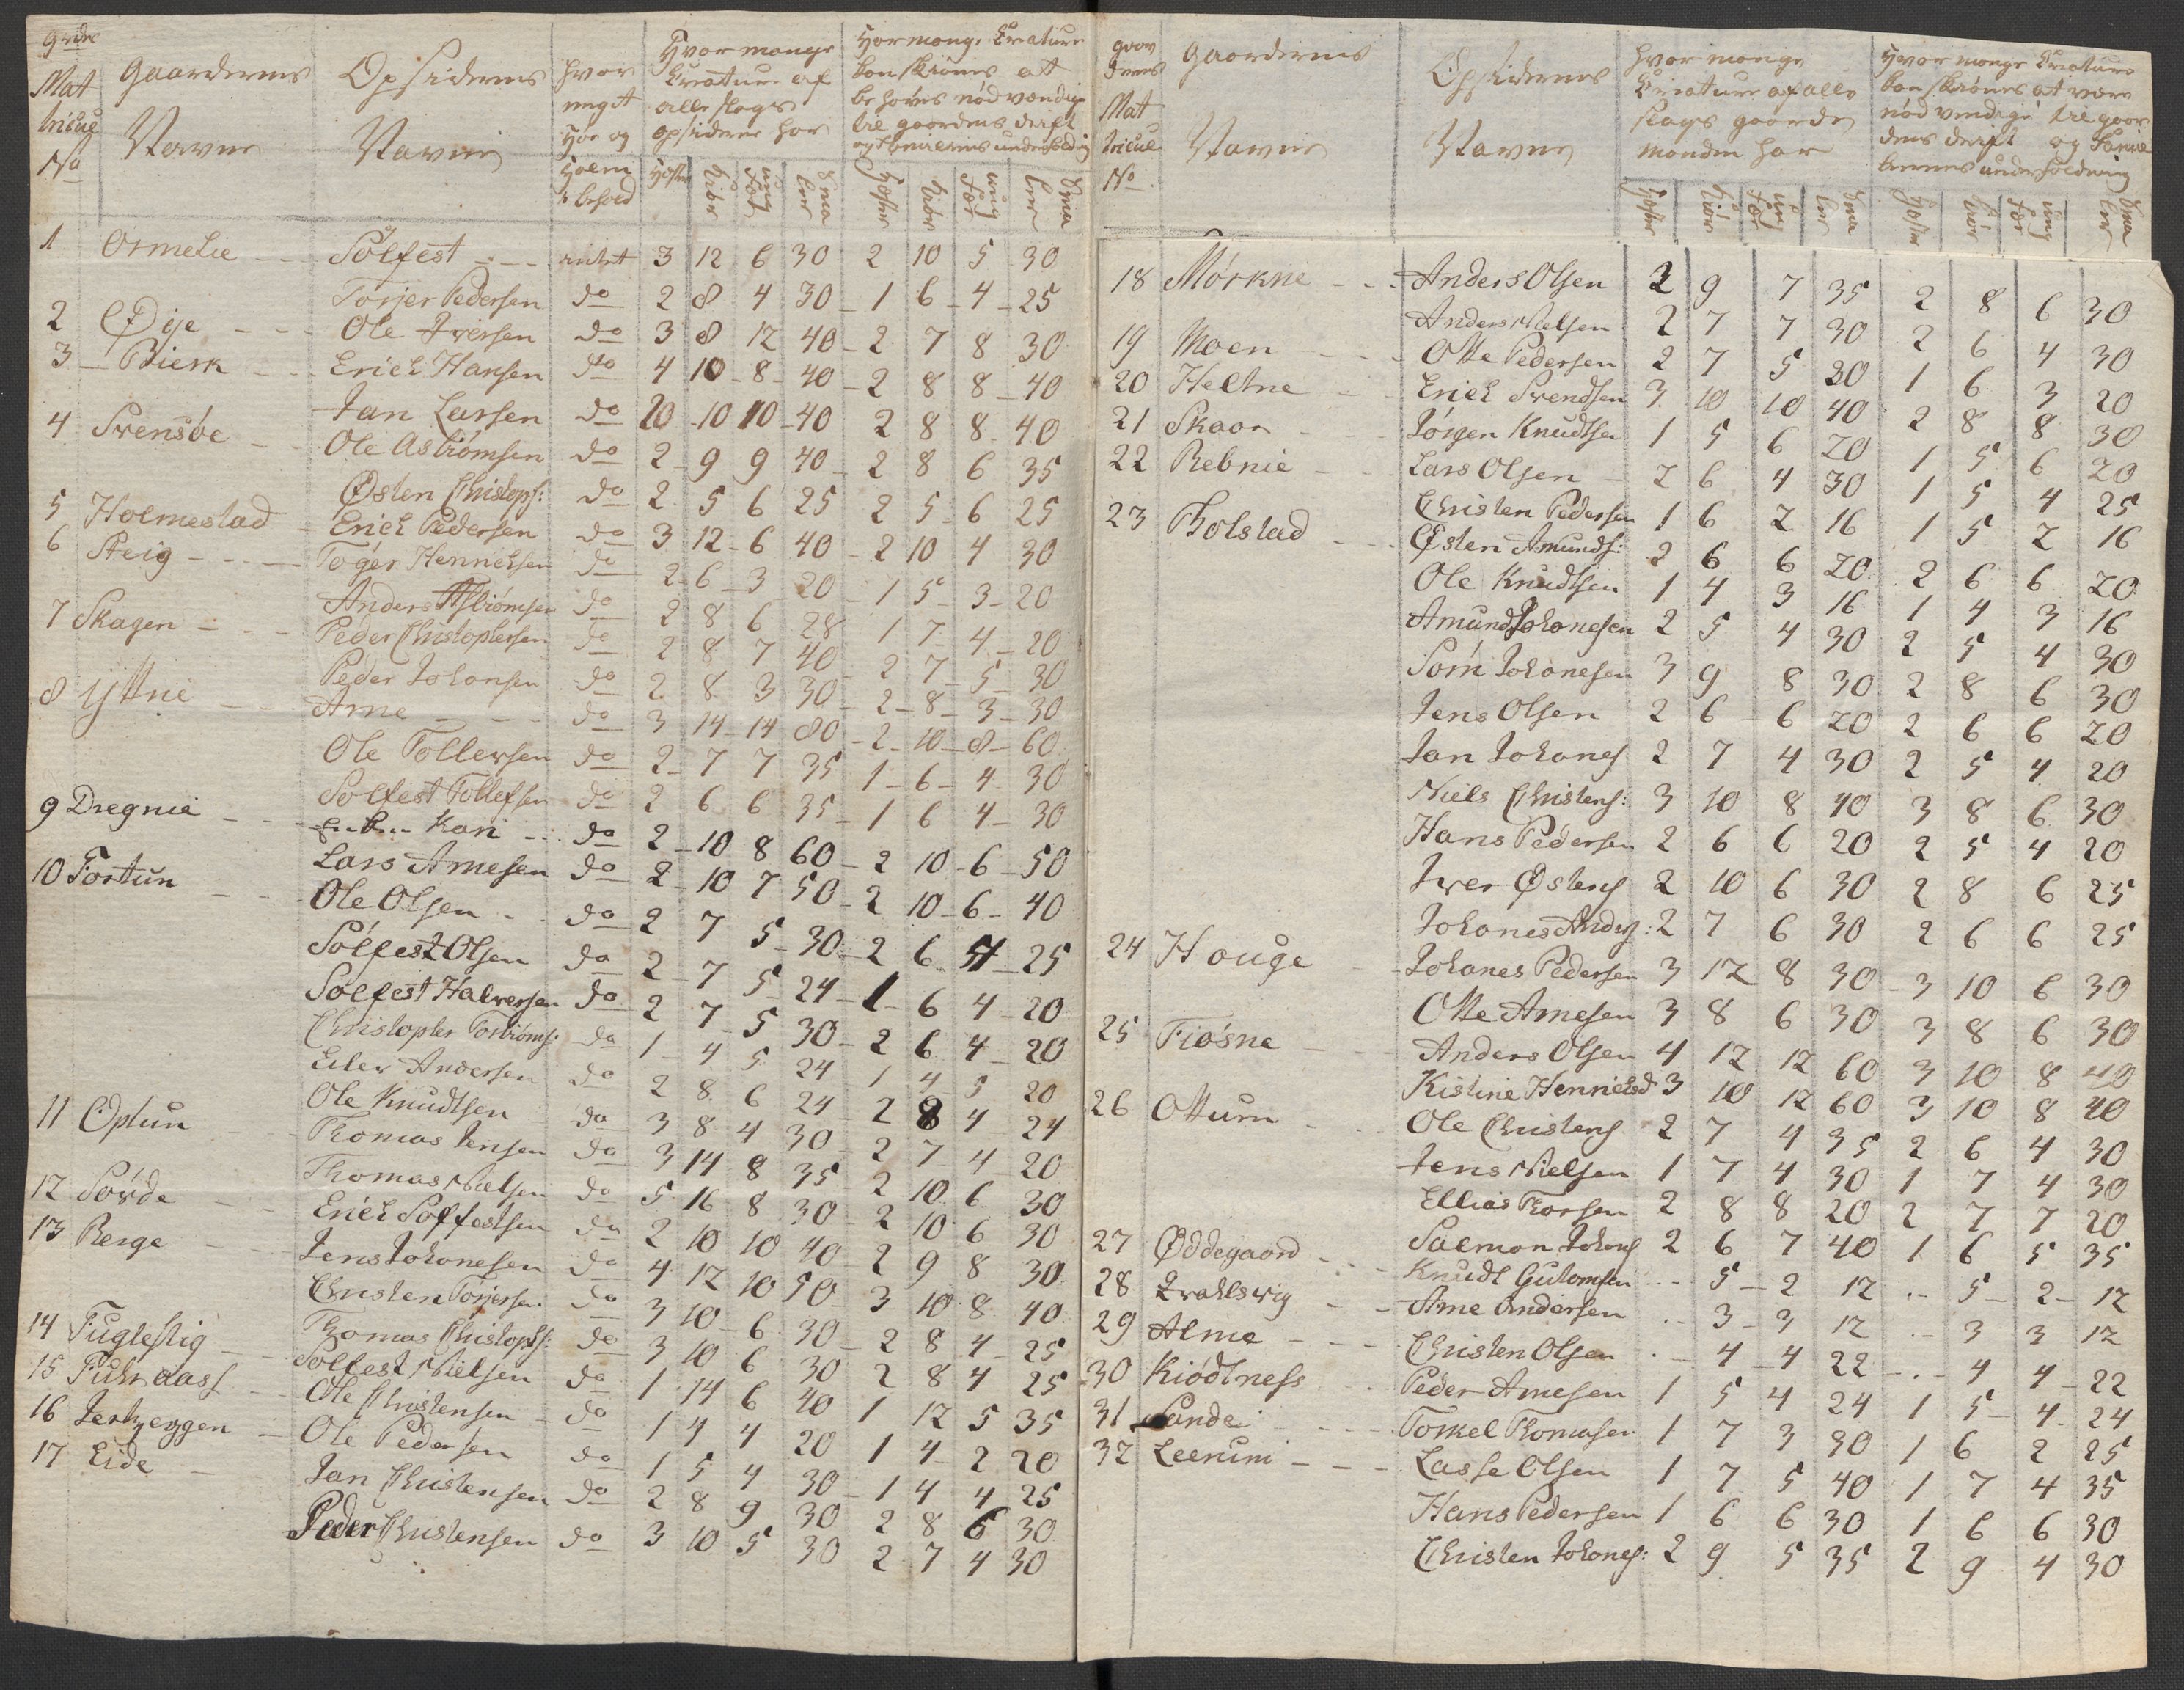 Mat
tricul
No
Gaardernes
Navne
Opsidernes
Navne
hvor
meget
Høe og
Halm
behold
Hvor mange
Creature af
alle slags
opsiderne har
Hvor mange Creature
kan skiønes at
behøves nødvendig
til gaardens drift
Heste
Kiør
ung
Fæ
Sma
ler
Heste
Kiør
ung
Fæ
Sma
ler
1 Ormelie Solfest intet 3 12 6 30 2 10 5 30
Torjer Pedersen do 2 8 4 30 1 6 4 25
2 Øije Ole Iversen do 3 8 12 40 2 7 8 30
3 Bierk Erich Hansen do 4 10 8 40 2 8 8 40
Jan Larsen do 20 10 10 40 2 8 8 40
4 Svensøe Ole Asbiømsen do 2 9 9 40 2 8 6 35
Østen Christops: do 2 5 6 25 2 5 6 25
5 Holmestad Erich Pedersen do 3 12 6 40 2 10 4 30
6 Steig Togér Hennichsen do 2 6 3 20 1 5 3 20
Anders Asbiømsen do 2 8 6 28 1 7 4 20
7 Skagen Peder Christophersen do 2 8 7 40 2 7 5 30
Peder Johansen do 2 8 3 30 2 8 3 30
8 Yttrie Arne do 3 14 14 80 2 10 8 60
Ole Tollevsen do 2 7 7 35 1 6 4 30
Solfest Tollefsen do 2 6 6 35 1 6 4 30
9 Dregnie Enken Kari do 2 10 8 60 2 10 6 50
Lars Arnesen do 2 10 7 50 2 10 6 40
10 Fortun Ole Olsen do 2 7 5 30 2 6 4 25
Solfest Olsen do 2 7 5 24 1 6 4 20
Solfest Halversen do 2 7 5 30 2 6 4 20
Christopher Torbiøms: do 1 4 5 24 1 4 5 20
Eiler Andersen do 2 8 6 24 2 8 4 24
Ole Knudtsen do 3 8 4 30 2 7 4 20
11 Optun Thomas Jensen do 3 14 8 35 2 10 6 30
Thomas Nielsen do 5 16 8 30 2 10 6 30
12 Sørde Erich Solfestsen do 2 10 10 40 2 9 8 30
13 Berge Jens Johonesen do 4 12 10 50 3 10 8 40
Christen Torjersen do 3 10 6 30 2 8 4 25
14 Fuglestig Thomas Christophs: do 3 10 6 30 2 8 4 25
15 Fuhraass Solfest Nielsen do 1 14 6 40 1 12 5 35
16 Jerkzeggen Ole Christensen do 1 4 4 20 1 4 2 20
17 Eide Ole Pedersen do 1 5 4 30 1 4 4 25
Jan Christensen do 2 8 9 30 2 8 6 30
Peder Christensen do 3 10 5 30 2 7 4 30
gaar
dens
Mat
tricul
No
Gaardernes
Navne
Opsidernes
Navne
hvor mange
Creature af alle
slags gaard
manden har
Hvor mange Creature
kan skiønes at være
nødvendige til gaar
dens drift og Famil
liernes underholdning
Heste
Kiør
ung
Fæ
Sma
ler
Heste
Kiør
ung
Fæ
Sma
ler
18 Mørkne Anders Olsen 2 9 7 35 2 8 6 30
Anders Nielsen 2 7 7 30 2 6 4 30
19 Moen Otte Pedersen 2 7 5 20 1 6 3 20
20 Heltne Erich Svendsen 3 10 10 40 2 8 8 30
21 Skaar Jørgen Knudtsen 1 5 6 20 1 5 6 20
22 Rebnie Lars Olsen 2 6 4 30 1 5 4 25
23 Bolstad Christen Pedersen 1 6 2 16 1 5 2 16
Østen Amunds: 2 6 6 20 2 6 6 20
Ole Knudtsen 1 4 3 16 1 4 3 16
Amund Johonesen 2 5 4 30 2 5 4 30
Sorn Johonesen 3 9 8 30 2 8 6 30
Jens Olsen 2 6 6 20 2 6 6 20
Jan Johones 2 7 4 30 2 5 4 20
Niels Christens: 3 10 8 40 3 8 6 30
Hans Pedersen 2 6 6 20 2 5 4 20
Iver Østens 2 10 6 30 2 8 6 25
Johones Anders: 2 7 6 30 2 6 6 25
24 Houge Johanes Pedersen 3 12 8 30 3 10 6 30
Otte Arnesen 3 8 6 30 3 8 6 30
25 Fiøsne Anders Olsen 4 12 12 60 3 10 8 40
Kistine Hennichsd 3 10 12 60 3 10 8 40
26 Ottum Ole Christens 2 7 4 35 2 6 4 30
Jens Nielsen 1 7 4 30 1 7 4 30
Ellias Thorsen 2 8 8 20 2 7 7 20
27 Øddegaard Salmon Johons 2 6 7 40 1 6 5 35
28 Qvahlsvig Knudt Gutomsen 5 2 12 5 2 12
29 Alme Arne Andersen 3 3 12 3 3 12
Christen Olsen 4 4 22 4 4 22
30 Kiødtness Peder Arnesen 1 5 4 24 1 5 4 24
31 Sande Torkel Thomasen 1 7 3 30 1 6 2 25
32 Leerum Lasse Olsen 1 7 5 40 1 7 4 35
Hans Pedersen 1 6 6 30 1 6 6 30
Christen Johones: 2 9 5 35 2 9 4 30